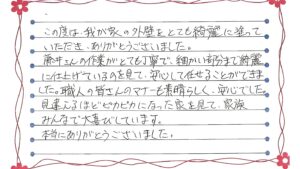 この度は、我が家の外壁をとても綺麗に塗って
いただき、ありがとうございました。
さんの作業がとても丁寧で、細かい部分まで綺麗
に仕上げているのを見て、安心して任せることができま
した。職人の皆さんのマナーも素晴らしく、安心でした。
見違えるほどピカピカになった家を見て、家族
みんなで大喜びしています。
本当にありがとうございました。